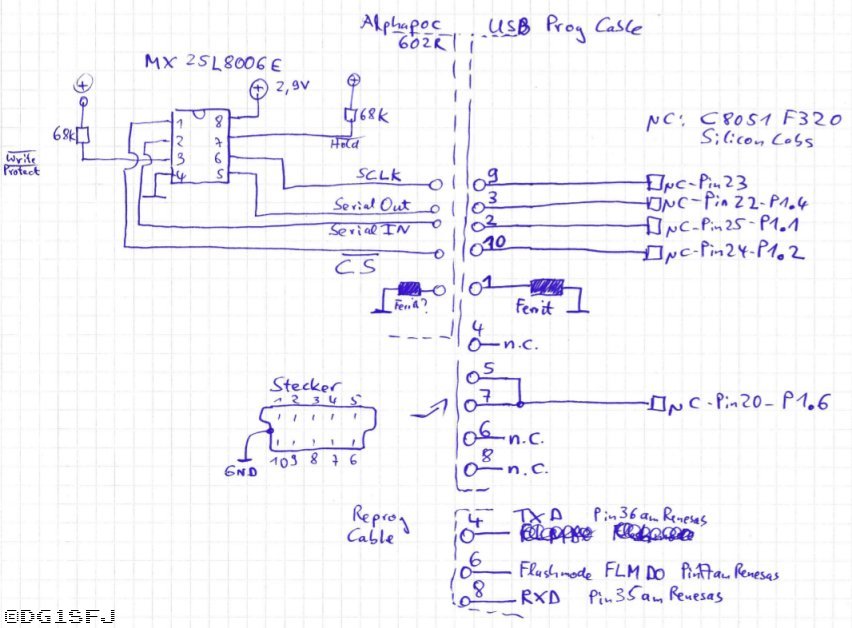 Alphapoc
602R
USB Prog Cable
MX 25L8006E
2,9V
68k
68k
Hold
Write
Protect
1 8
2 7
3 6
4 5
µC: C8051 F320
Silicon Labs
SCLK
Serial Out
Serial IN
CS
Ferrit?
9
3
2
10
1
Ferrit
µC-Pin23
µC-Pin22-P1.4
µC-Pin25-P1.1
µC-Pin24-P1.2
4
n.c.
5
7
µC-Pin20-P1.6
6
n.c.
8
n.c.
Stecker
1 2 3 4 5
10 9 8 7 6
GND
Reprog
Cable
4 TXD Pin36 am Renesas
6 Flashmode FLMD0 Pin17 am Renesas
8 RXD Pin35 am Renesas
@DG1SFJ